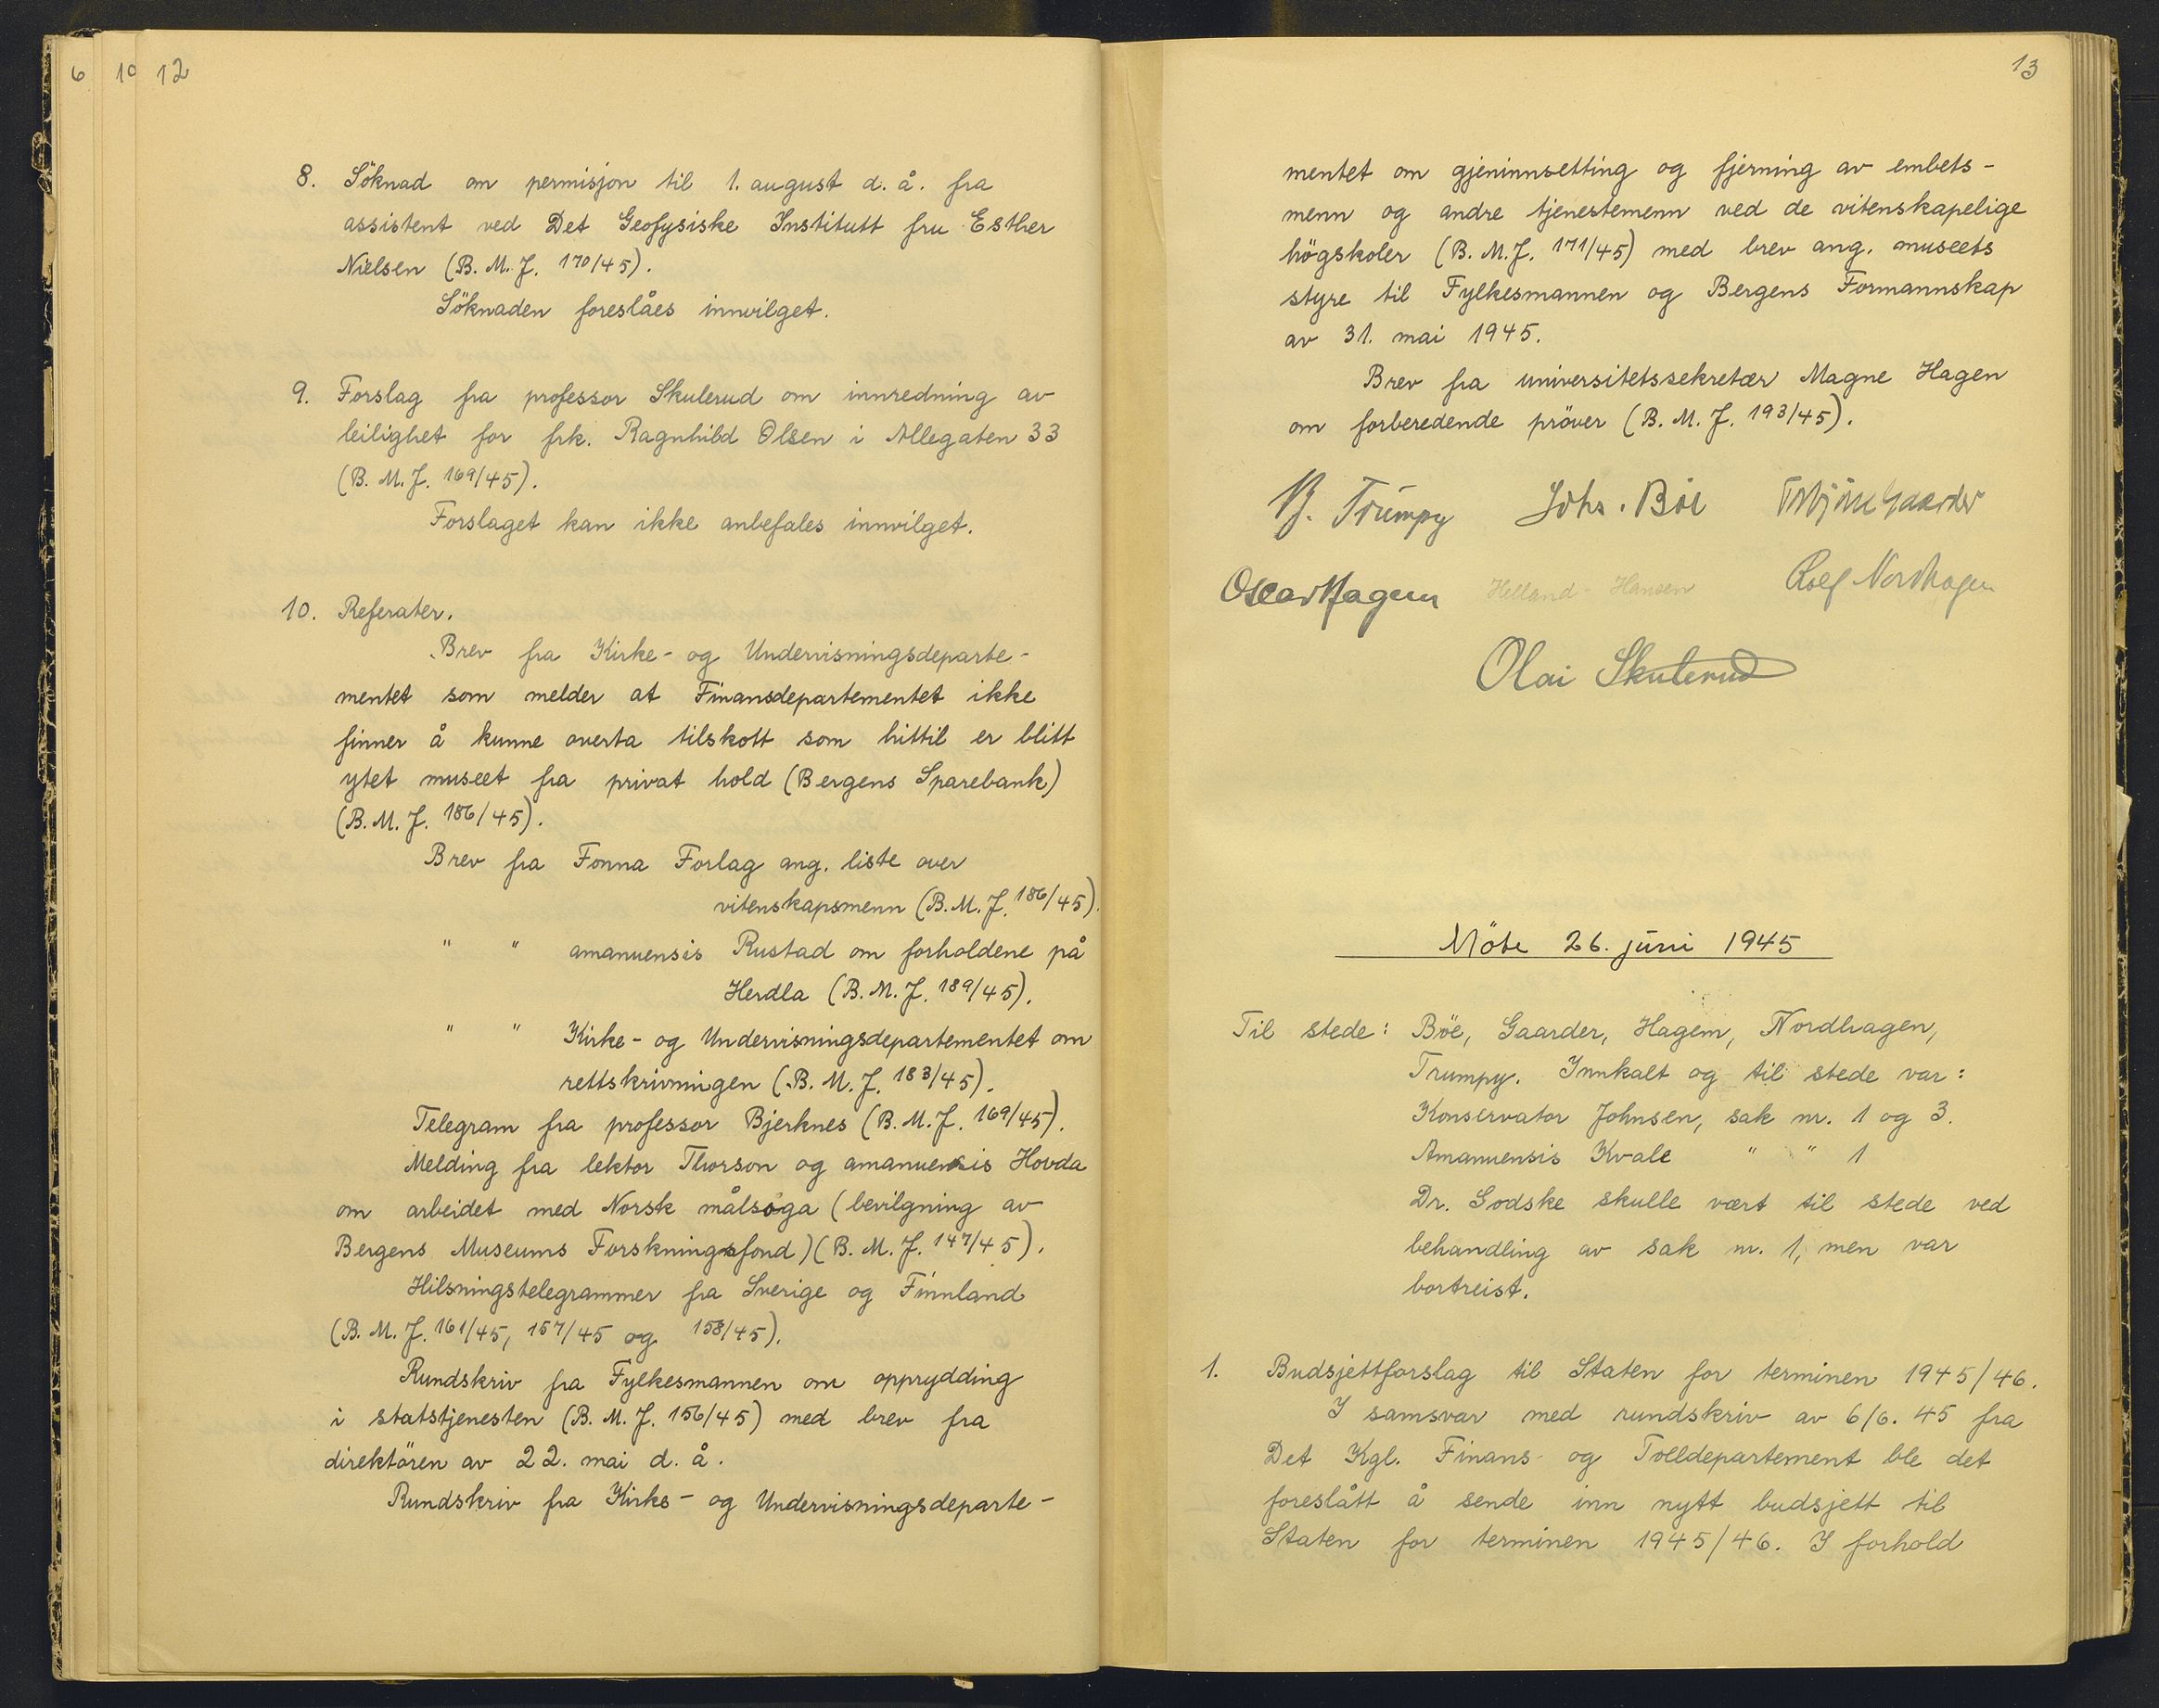 6 10 12
8. Söknad om permisjon til 1. august d. å. fra
assistent ved Det Geofysiske Institutt fru Esther
Nielsen (B. M. J. 170/45).
Söknaden foreslåes innvilget.
9. Forslag fra professor Skulerud om innredning av
leilighet for frk. Ragnhild Olsen i Allegaten 33
(B. M. J. 169/45).
Forslaget kan ikke anbefales innvilget.
10. Referater.
Brev fra Kirke- og Undervisningsdeparte-
mentet som melder at Finansdepartementet ikke
finner å kunne overta tilskott som hittil er blitt
ytet museet fra privat hold (Bergens Sparebank)
(B. M. J. 186/45).
Brev fra Fonna Forlag ang. liste over
vitenskapsmenn (B. M. J. 186/45).
" " amanuensis Rustad om forholdene på
Herdla (B. M. J. 189/45).
" " Kirke- og Undervisningsdepartementet om
rettskrivningen (B. M. J. 183/45).
Telegram fra professor Bjerknes (B. M. J. 169/45).
Melding fra lektor Thorson og amanuensis Hovda
om arbeidet med Norsk målsoga (bevilgning av
Bergens Museums Forskningsfond) (B. M. J. 147/45).
Hilsningstelegrammer fra Sverige og Finnland
(B. M. J. 161/45, 157/45 og 158/45).
Rundskriv fra Fylkesmannen om opprydding
i statstjenesten (B. M. J. 156/45) med brev fra
direktören av 22. mai d. å.
Rundskriv fra Kirke- og Undervisningsdeparte-
13
mentet om gjeninnsetting og fjerning av embets-
menn og andre tjenestemenn ved de vitenskapelige
högskoler (B. M. J. 171/45) med brev ang. museets
styre til Fylkesmannen og Bergens Formannskap
av 31. mai 1945.
Brev fra universitetssekretær Magne Hagen
om forberedende pröver (B. M. J. 193/45).
B. Trumpy Johs. Böe Torbjörn Gaarder
Oscar Hagem Helland-Hansen Rolf Nordhagen
Olai Skulerud
Möte 26. juni 1945
Til stede: Böe, Gaarder, Hagem, Nordhagen,
Trumpy. Innkalt og til stede var:
Konservator Johnsen, sak nr. 1 og 3.
Amanuensis Kvale " " 1
Dr. Godske skulle vært til stede ved
behandling av sak nr. 1, men var
bortreist.
1. Budsjettforslag til Staten for terminen 1945/46.
I samsvar med rundskriv av 6/6. 45 fra
Det Kgl. Finans- og Tolldepartement ble det
foreslått å sende inn nytt budsjett til
Staten for terminen 1945/46. I forhold